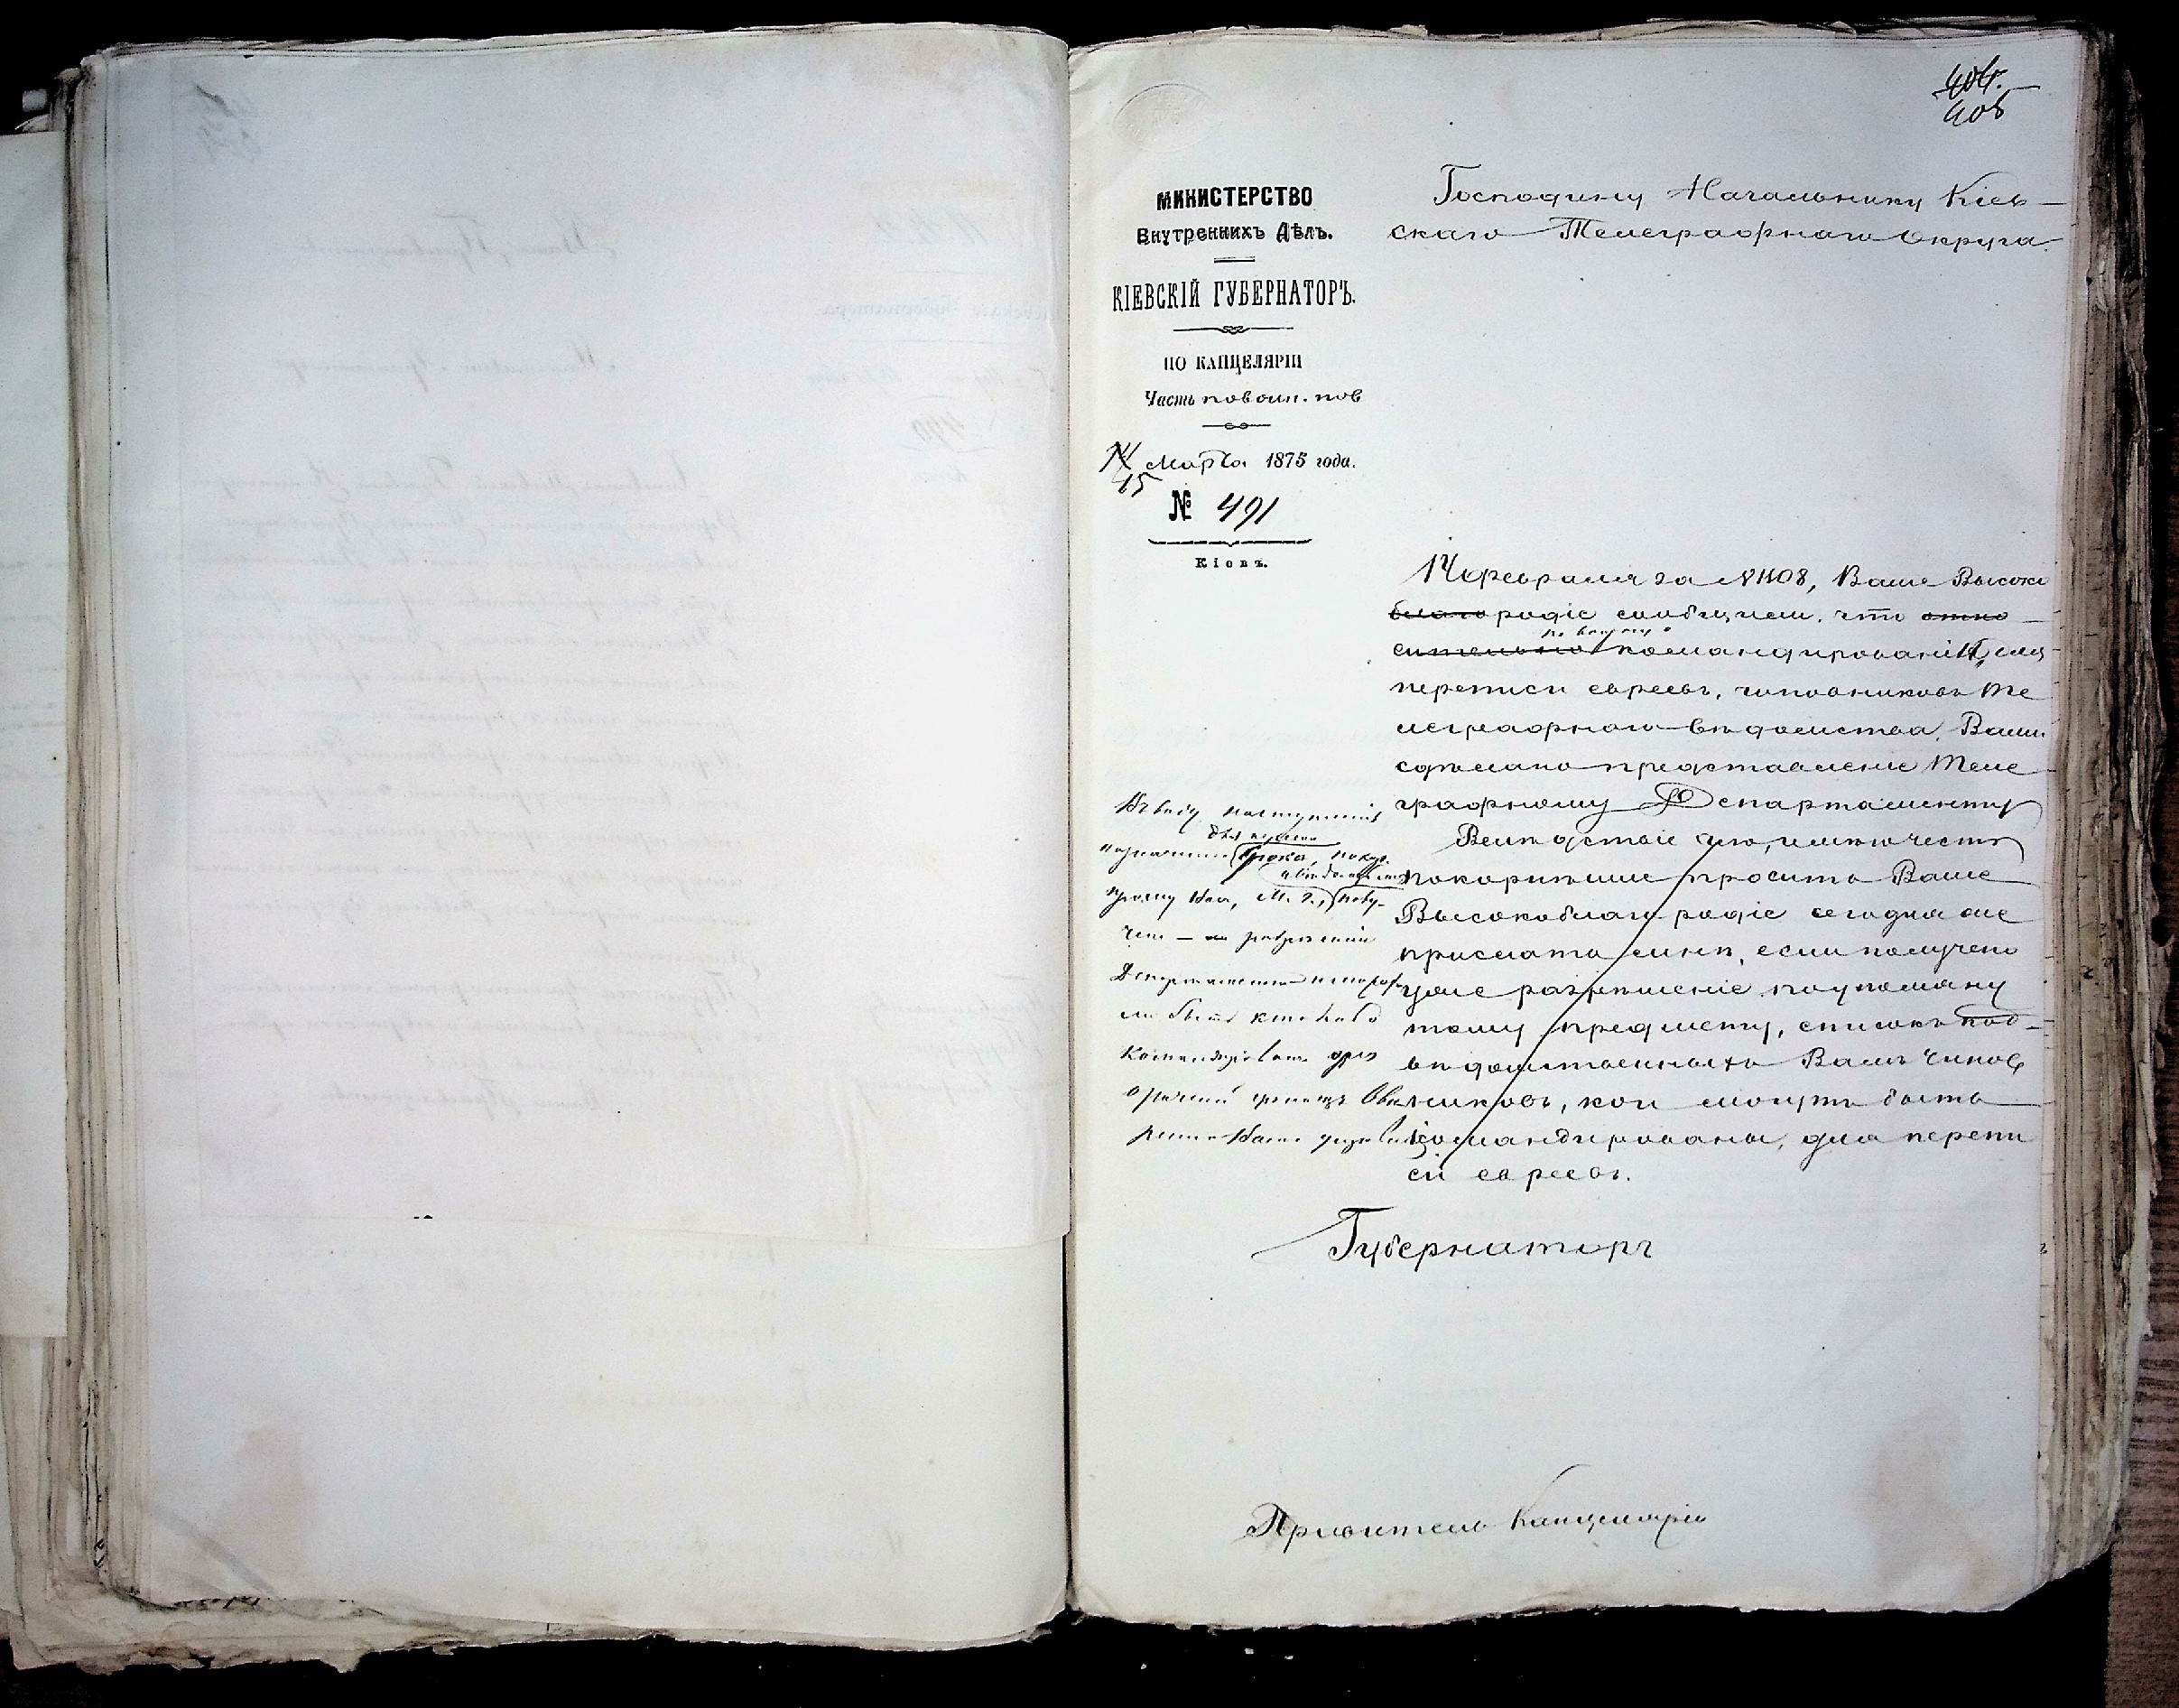 404.
405
МИНИСТЕРСТВО
Внутреннихъ Дѣлъ.
КІЕВСКІЙ ГУБЕРНАТОРЪ.
ПО КАНЦЕЛЯРІИ
Часть по воин. пов
14 Марта 1875 года.
15
№ 491
Кіевъ.
Господину Начальнику Кіев-
скаго Телеграфнаго Округа.
14 февраля за №1108, Ваше Высоко
благородіе сообщили, что отно-
сительно командированія для
переписи евреевъ, чиновниковъ Те
леграфнаго вѣдомства, Вами
сдѣлано представленіе Теле
графному Департаменту
Вслѣдствіе сего, имѣю честь
покорнѣйше просить Ваше
Высокоблагородіе сегодня же
прислать мнѣ, если получено
уже разрѣшеніе по упомяну
тому предмету, списокъ под-
вѣдомственныхъ Вамъ чинов
никовъ, кои могутъ быть
командированы, для перепи
си евреевъ.
Въ виду наступленія
для
срока, покор.
прошу Васъ, М. Г.,
разрѣшеніе
Департамента
ли быть кто либо
командированъ для
Губернаторъ
Правитель Канцеляріи